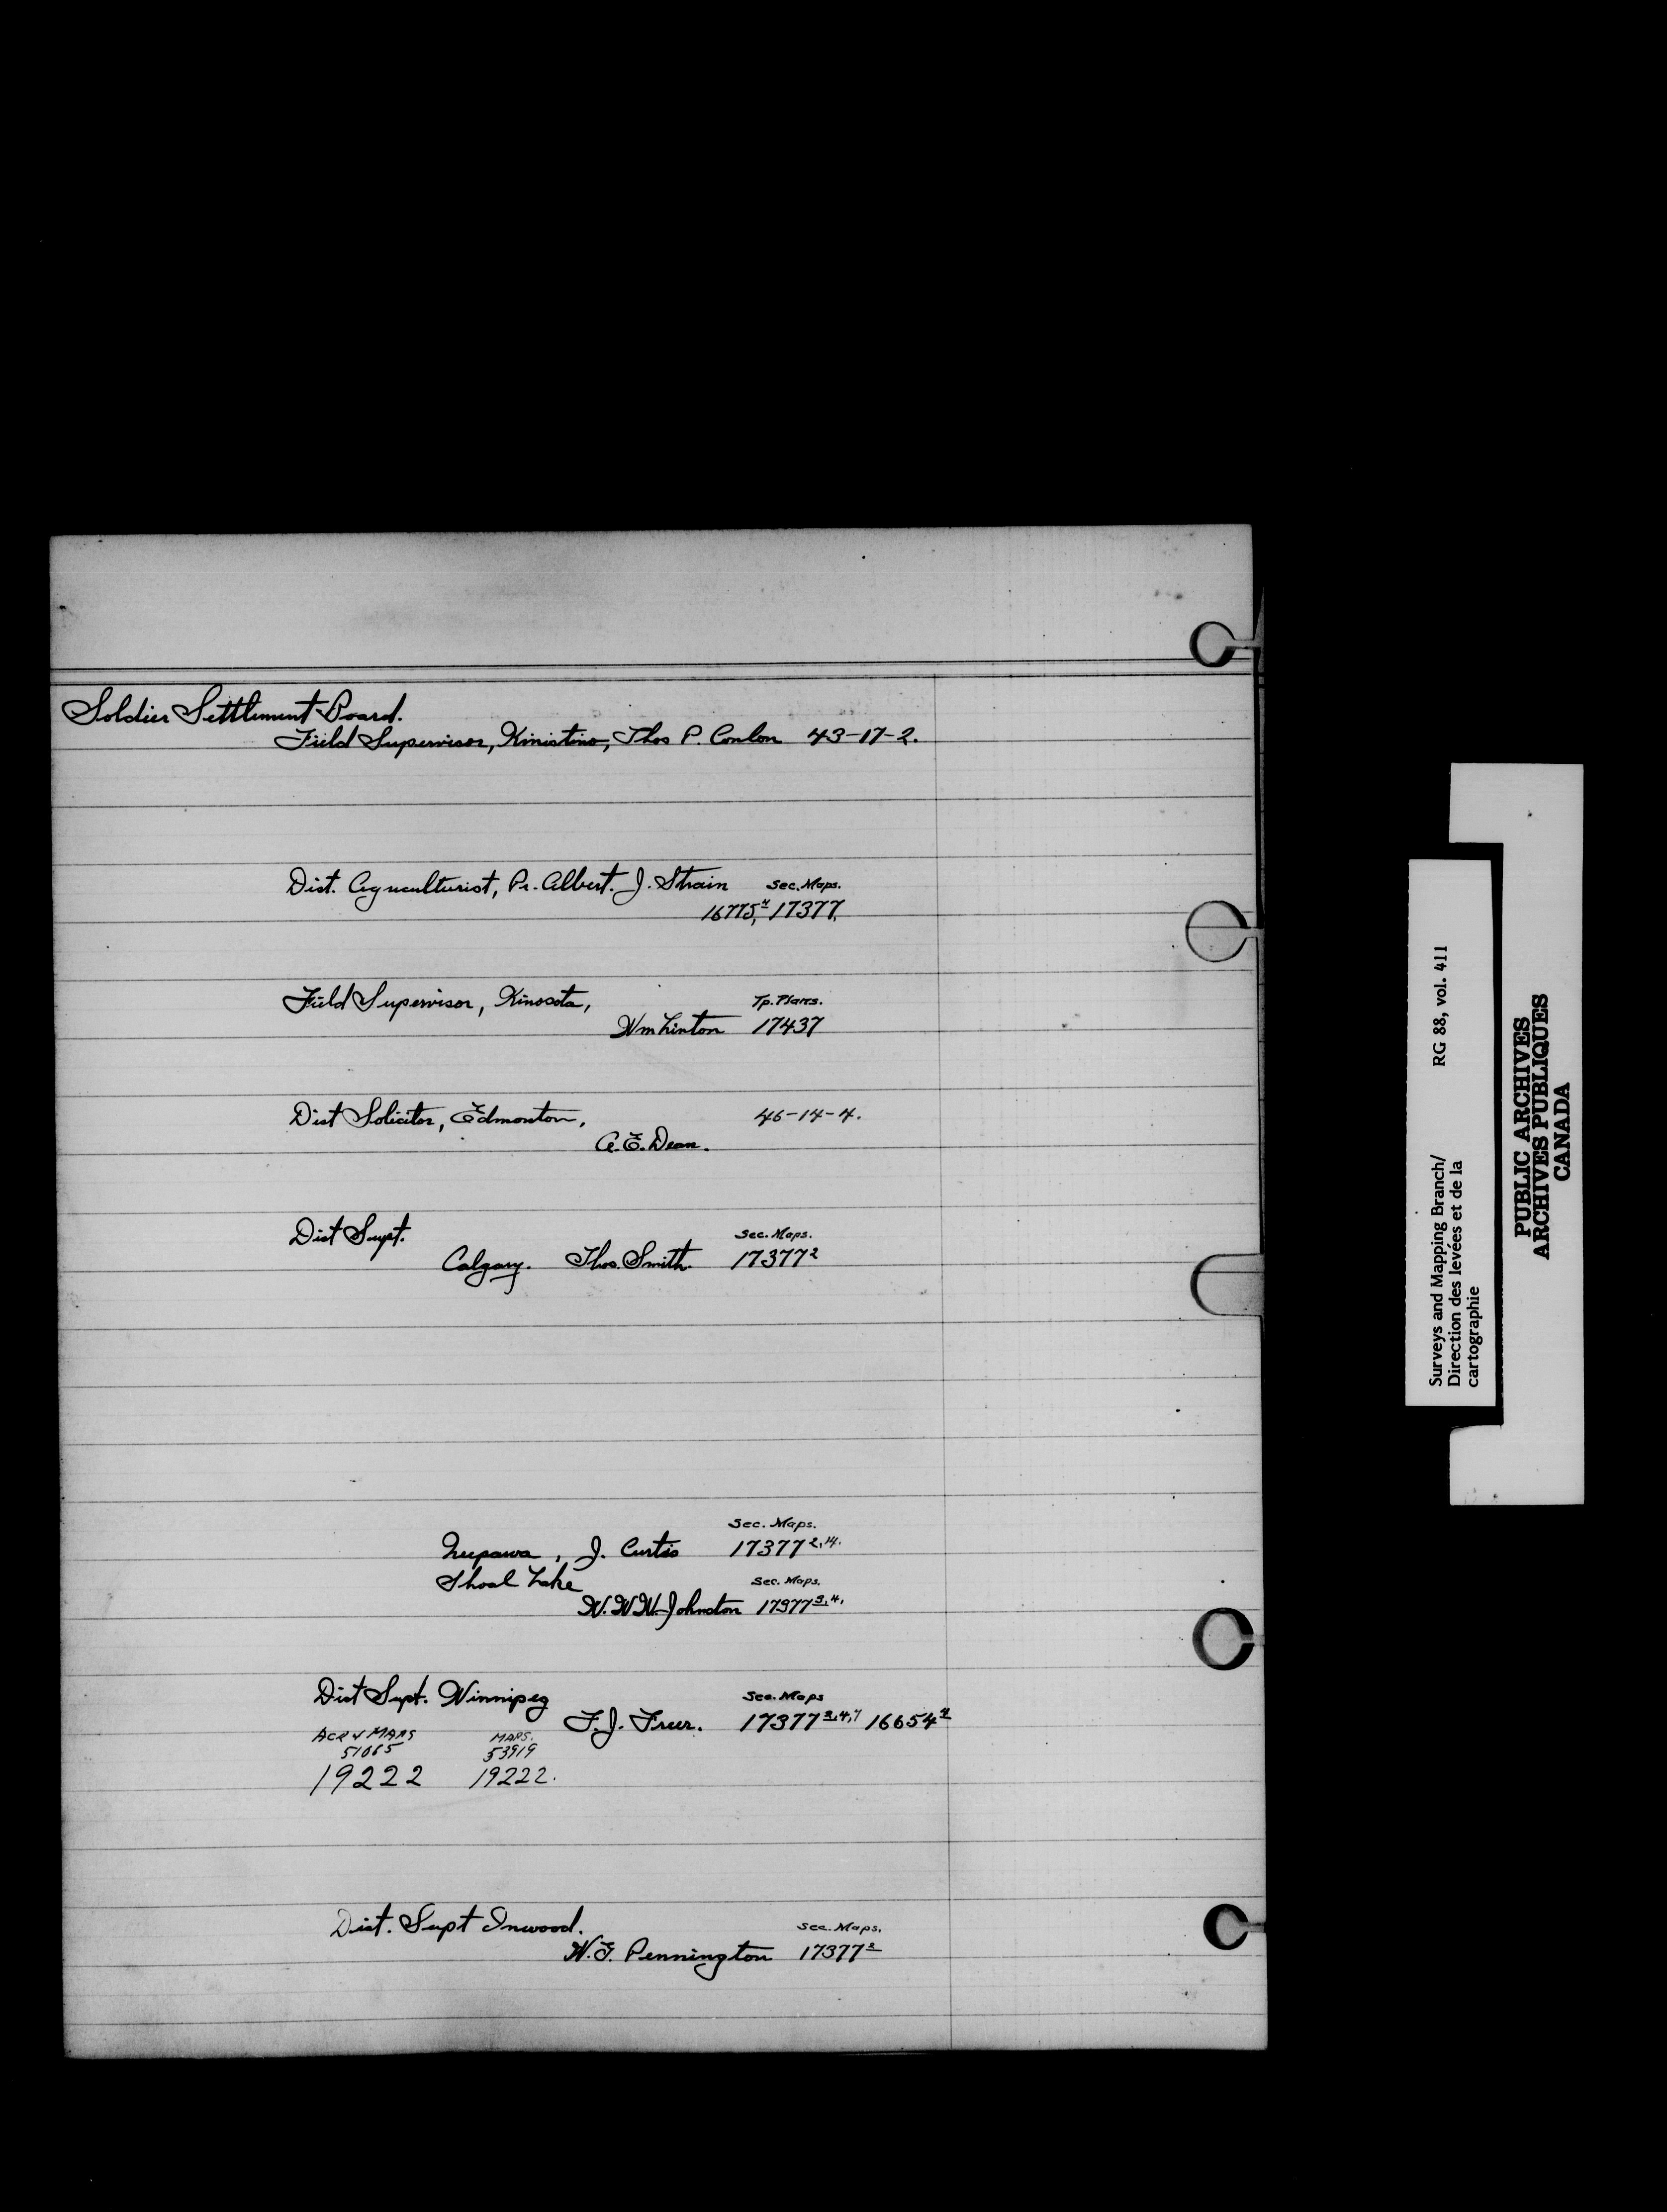 Soldier Settlement Board.
Field Supervisor, Kinistino, Thos P. Conlon 43-17-2.
Dist. Agriculturist, Pr. Albert. J. Strain Sec. Maps.
16775,4 17377,
Field Supervisor, Kinosota, Tp. Plans.
Wm Linton 17437
Dist Solicitor, Edmonton, 46-14-4.
A. E. Dean.
Dist Supt. Sec. Maps.
Calgary. Thos. Smith. 17377 2
Sec. Maps.
Neepawa, J. Curtis 17377 2,14.
Shoal Lake Sec. Maps.
W. W. W. Johnston 17377 3,4,
Dist Supt. Winnipeg Sec. Maps
F. J. Freer. 17377 3,4,7 16654 4
MAPS MAPS.
51065 53919
19222 19222.
Dist. Supt Inwood. Sec. Maps.
W. F. Pennington 17377 2
Surveys and Mapping Branch/ RG 88, vol. 411
Direction des levées et de la
cartographie
PUBLIC ARCHIVES
ARCHIVES PUBLIQUES
CANADA